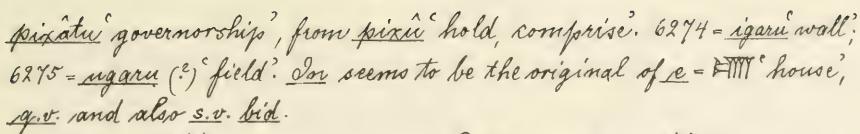 pixâtu ‘governorship’, from pixû ‘hold, comprise’. 6274 = igaru ‘wall’;
6275 = ugaru (?) ‘field’. In seems to be the original of e = 𒂍 ‘house’,
q.v. and also s.v. bid.